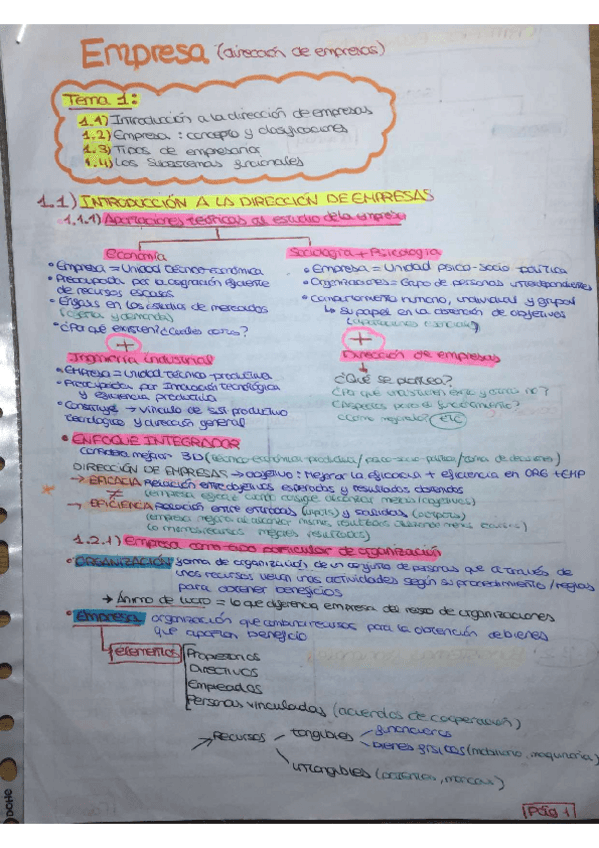 Empresa (dirección de empresas)
Tema 1:
1.1) Introducción a la dirección de empresas
1.2) Empresa: concepto y clasificaciones
1.3) Tipos de empresarios
1.4) Los Subsistemas funcionales
1.1) INTRODUCCIÓN A LA DIRECCIÓN DE EMPRESAS
1.1.1) Aportaciones teóricas al estudio de la empresa
Economía
• Empresa = Unidad técnico-económica
• Preocupada por la asignación eficiente
de recursos escasos
• Énfasis en los estudios de mercados
(oferta y demanda)
• ¿Por qué existen?
Sociología + Psicología
• Empresa = Unidad psico-socio política
• Organizaciones = Grupo de personas interdependientes
• Comportamiento humano, individual y grupal
↳ su papel en la obtención de objetivos
+
Ingeniería industrial
• EMPRESA = Unidad técnico-productiva
• Preocupada por Innovación tecnológica
y eficiencia productiva
• Construye → vínculo de
tecnológico y dirección general
+
Dirección de empresas
¿Qué se plantea?
etc
• ENFOQUE INTEGRADOR
3D (técnico-económica-productiva/psico-socio-política/toma de decisiones)
DIRECCIÓN DE EMPRESAS → objetivo: Mejorar la eficacia + eficiencia en ORG + EMP
→ EFICACIA Relación entre objetivos esperados y resultados obtenidos
≠
→ EFICIENCIA Relación entre entradas (inputs) y salidas (outputs)
1.2.1) Empresa como tipo particular de organización
• ORGANIZACIÓN forma de organización de un conjunto de personas que a través de
unos recursos llevan unas actividades según su procedimiento/reglas
para obtener beneficios
→ Ánimo de lucro = lo que diferencia empresa del resto de organizaciones
• Empresa organización que combina recursos para la obtención de bienes
que aportan beneficio
elementos
Propietarios
Directivos
Empleados
Personas vinculadas (acuerdos de cooperación)
→ Recursos
tangibles
financieros
bienes físicos (mobiliario, maquinaria)
intangibles (patentes, marcas)
Pág 1